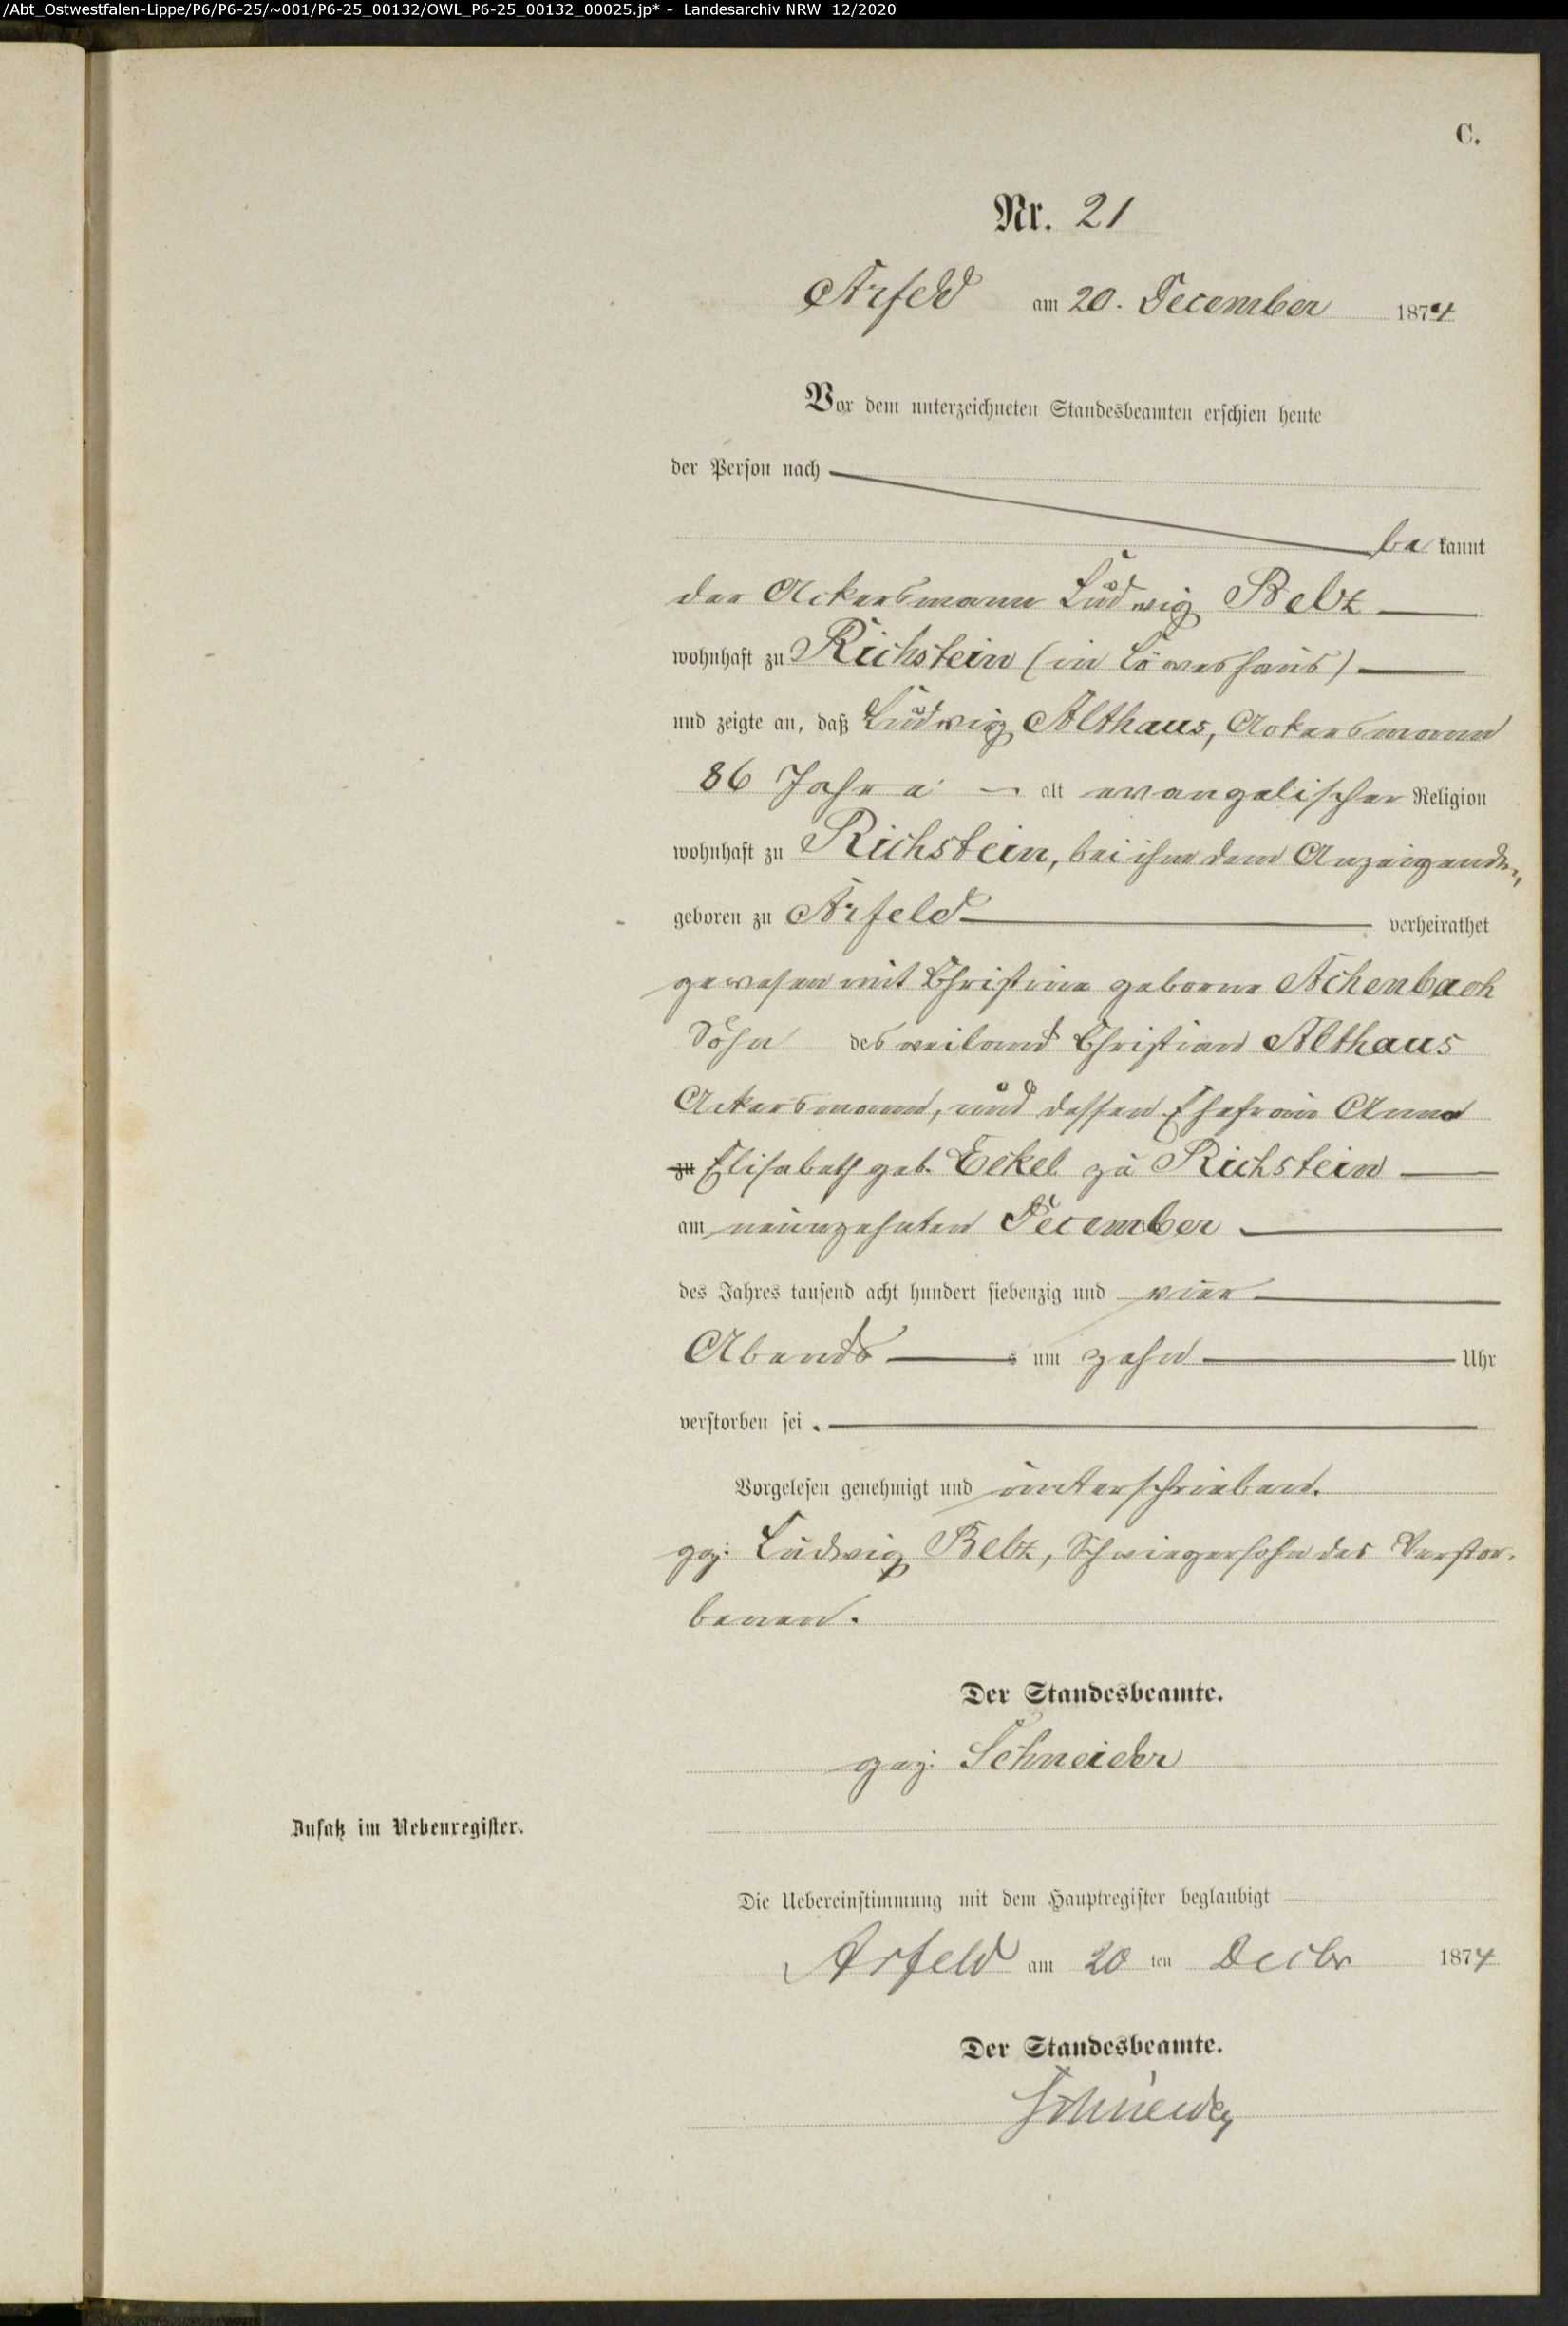 /Abt_Ostwestfalen-Lippe/P6/P6-25/~001/P6-25_00132/OWL_P6-25_00132_00025.jp* - Landesarchiv NRW 12/2020
C.
Nr. 21
Arfeld am 20. December 1874
Vor dem unterzeichneten Standesbeamten erschien heute
der Person nach
bekannt
der Ackersmann Ludwig Belz
wohnhaft zu Richstein (in Löweshaus)
und zeigte an, daß Ludwig Althaus, Ackersmann
86 Jahre alt evangelischer Religion
wohnhaft zu Richstein, bei ihm dem Anzeigenden,
geboren zu Arfeld verheirathet
gewesen mit Christine geborne Achenbach
Sohn des weiland Christian Althaus
Ackersmann, und dessen Ehefrau Anna
zu Elisabeth geb. Eckel zu Richstein
am neunzehnten December
des Jahres tausend acht hundert siebenzig und vier
Abends s um zehn Uhr
verstorben sei.
Vorgelesen genehmigt und unterschrieben.
gez. Ludwig Belz, Schwiegersohn des Verstor-
benen.
Der Standesbeamte.
gez. Schneider
Zusatz im Nebenregister.
Die Uebereinstimmung mit dem Hauptregister beglaubigt
Arfeld am 20 ten Decbr 1874
Der Standesbeamte.
Schneider